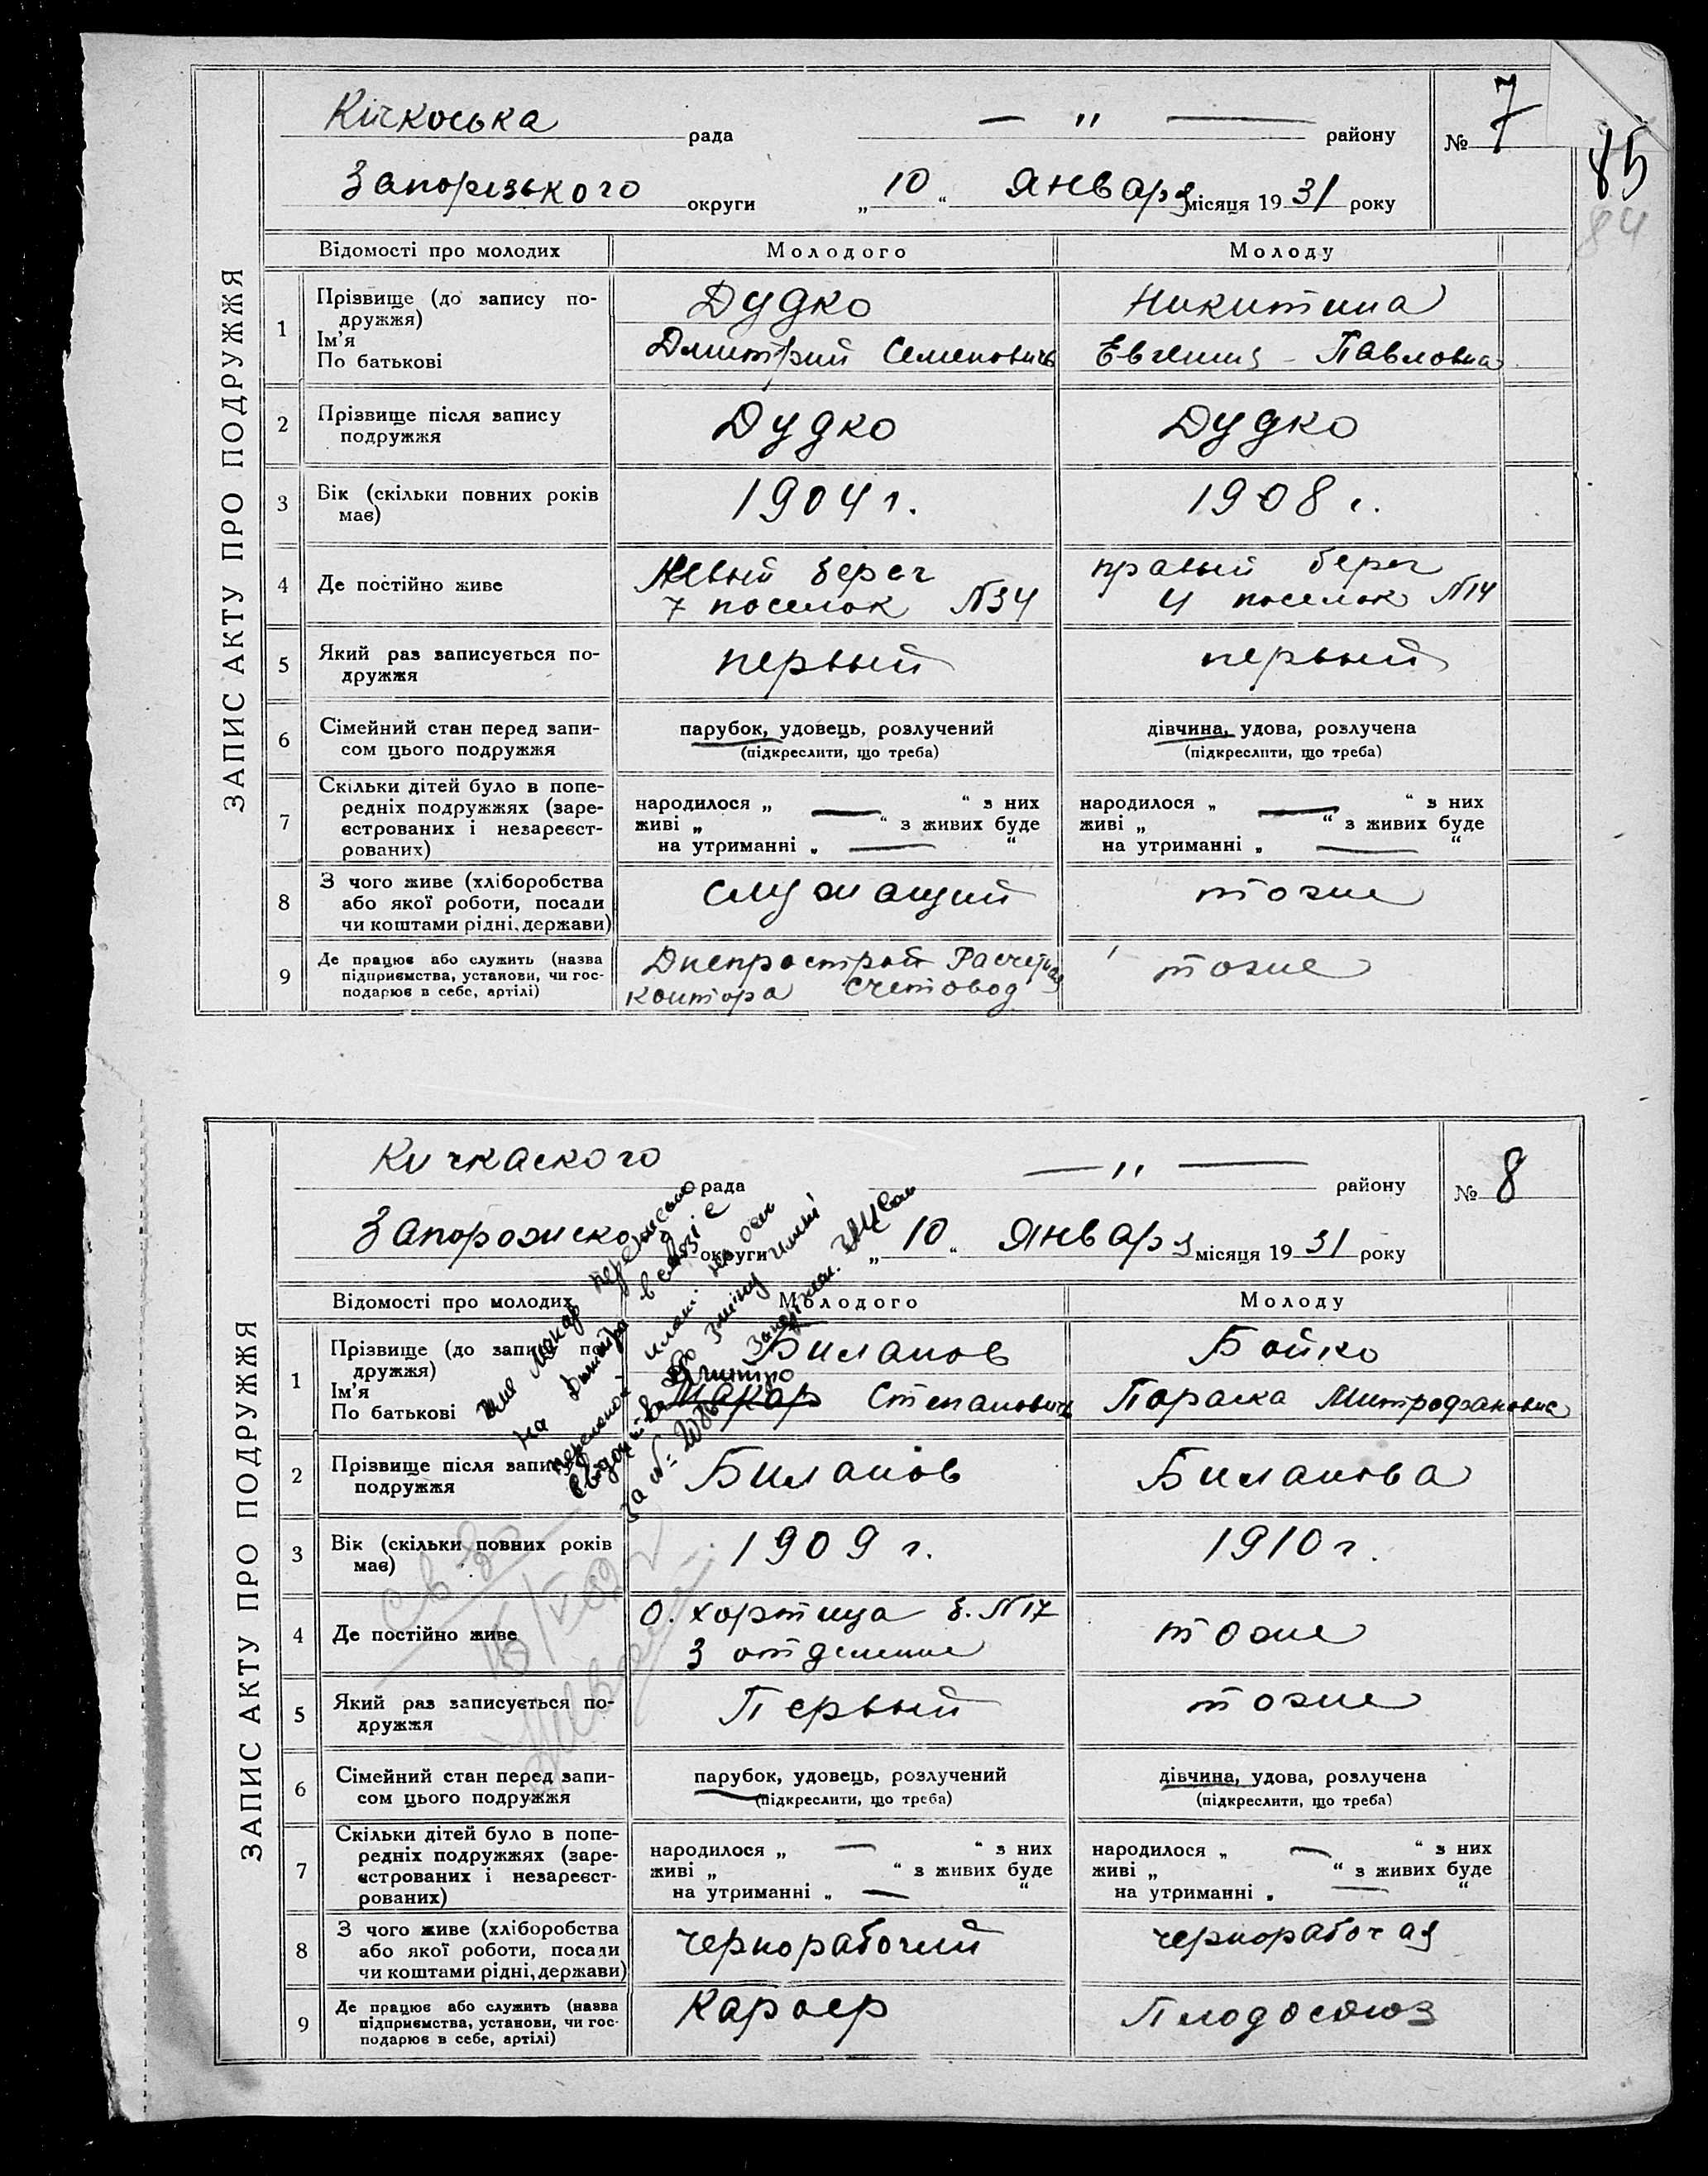 ЗАПИС АКТУ ПРО ПОДРУЖЖЯ
Кічкоська рада — " — району № 7
85
84
Запорізького округи „ 10 “ Января місяця 19 31 року
Відомості про молодих Молодого Молоду
1 Прізвище (до запису по-
дружжя)
Ім'я
По батькові
Дудко
Дмитрий Семенович
Никитина
Евгения - Павловна
2 Прізвище після запису
подружжя
Дудко Дудко
3 Вік (скільки повних років
має)
1904 г. 1908 г.
4 Де постійно живе
Левый берег
7 поселок №34
правый берег
4 поселок №14
5 Який раз записується по-
дружжя
первый первый
6 Сімейний стан перед запи-
сом цього подружжя
парубок, удовець, розлучений
(підкреслити, що треба)
дівчина, удова, розлучена
(підкреслити, що треба)
7 Скільки дітей було в попе-
редніх подружжях (заре-
єстрованих і незареєст-
рованих)
народилося „ — “ з них
живі „ “ з живих буде
на утриманні „ — “
народилося „ — “ з них
живі „ “ з живих буде
на утриманні „ — “
8 З чого живе (хліборобства
або якої роботи, посади
чи коштами рідні, держави)
служащий тоже
9 Де працює або служить (назва
підприємства, установи, чи гос-
подарює в себе, артілі)
Днепрострой Расчетная
контора счетовод
тоже
ЗАПИС АКТУ ПРО ПОДРУЖЖЯ
Кичкаского рада — " — району № 8
Запорожско округи „ 10 “ Января місяця 19 31 року
Відомості про молодих Молодого Молоду
1 Прізвище (до запису по-
дружжя)
Ім'я
По батькові
Биланов
Дмитро
Макар Степанович
Бойко
Параска Митрофановна
Имя Макар переписано
на Дмитра в связі с
переменой имени на осн
свідоцтва про зміну имені
за №
2 Прізвище після запису
подружжя
Биланов Биланова
3 Вік (скільки повних років
має)
1909 г. 1910 г.
4 Де постійно живе
О. Хортица б. №17
3 отделение
тоже
5 Який раз записується по-
дружжя
Первый тоже
6 Сімейний стан перед запи-
сом цього подружжя
парубок, удовець, розлучений
(підкреслити, що треба)
дівчина, удова, розлучена
(підкреслити, що треба)
7 Скільки дітей було в попе-
редніх подружжях (заре-
єстрованих і незареєст-
рованих)
народилося „ — “ з них
живі „ “ з живих буде
на утриманні „ — “
народилося „ — “ з них
живі „ “ з живих буде
на утриманні „ — “
8 З чого живе (хліборобства
або якої роботи, посади
чи коштами рідні, держави)
чернорабочий чернорабочая
9 Де працює або служить (назва
підприємства, установи, чи гос-
подарює в себе, артілі)
Карьер Плодосоюз